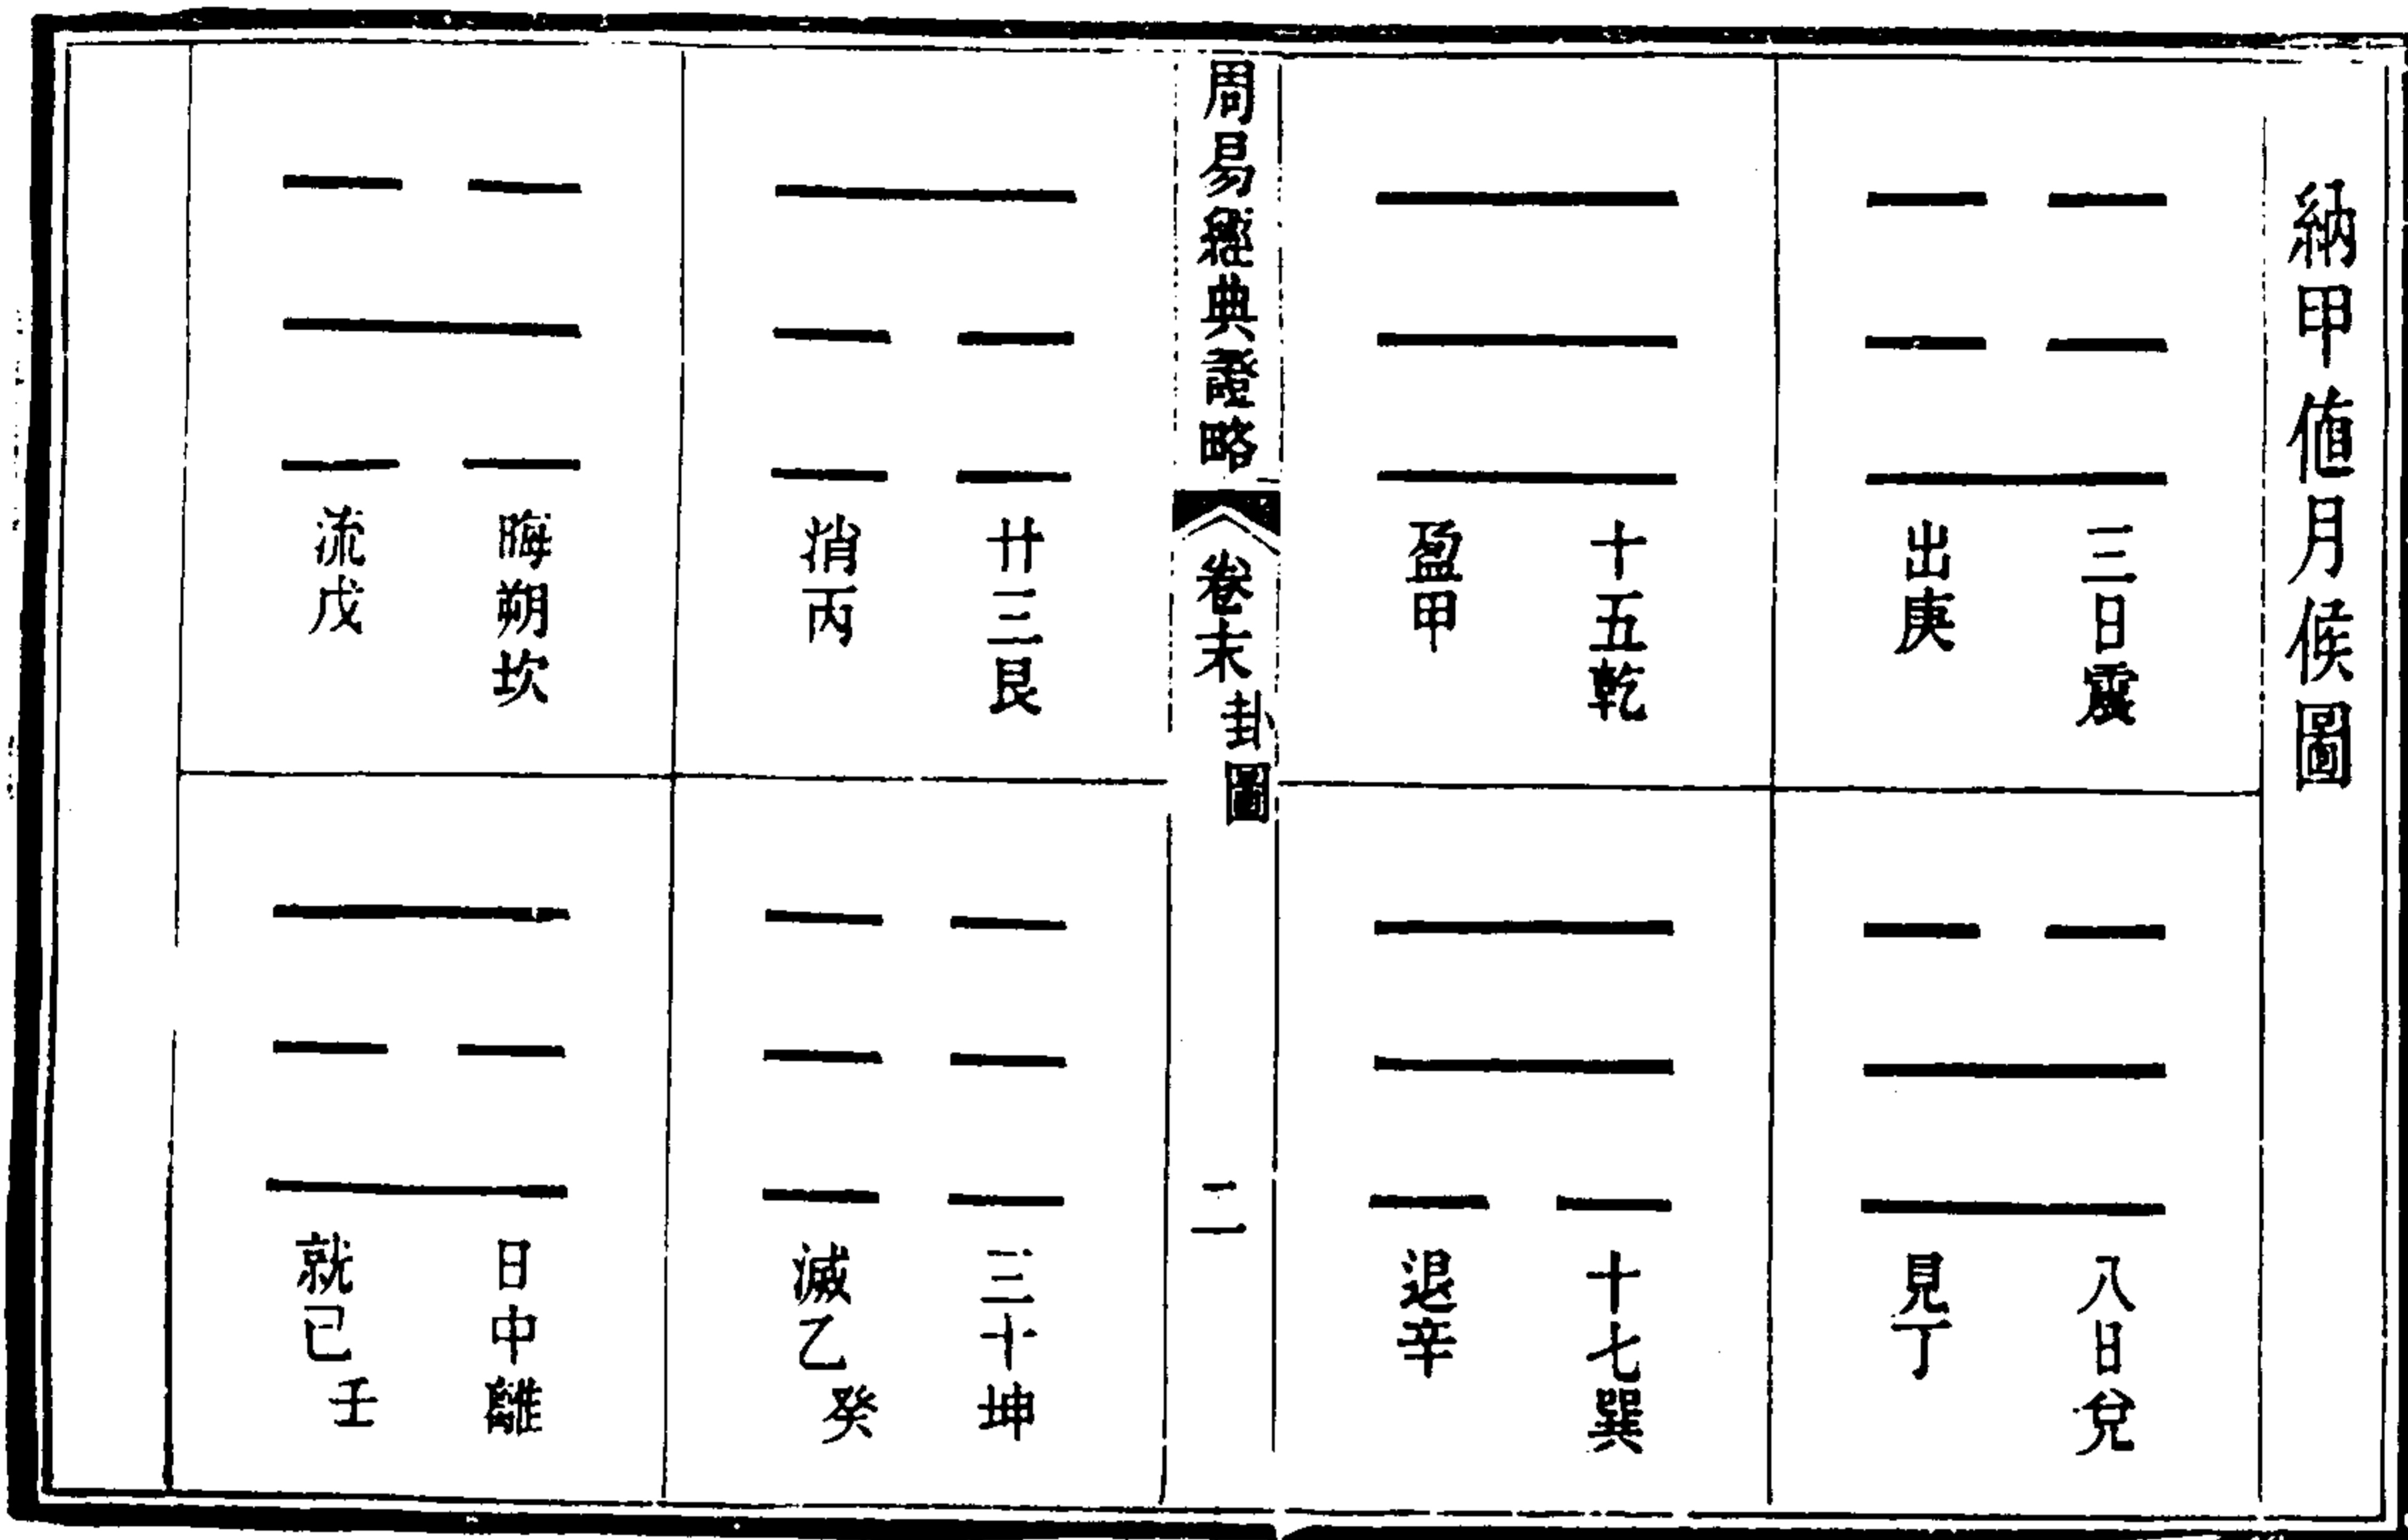 納甲値月候圖
三日震
出庚
八日兌
見丁
十五乾
盈甲
十七巽
退辛
周易經典證略 卷末 卦圖 二
廿三艮
消丙
三十坤
滅乙癸
晦朔坎
流戊
日中離
就己壬